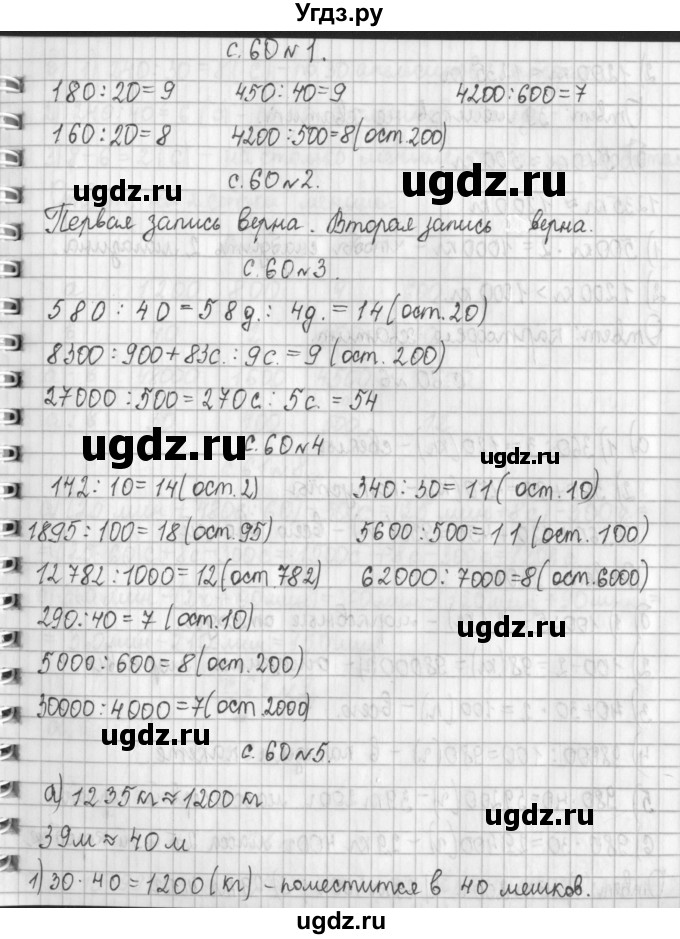 Угдз.ру
с. 60 № 1.
180 : 20 = 9 450 : 40 = 9 4200 : 600 = 7
160 : 20 = 8 4200 : 500 = 8 (ост. 200)
ugdz.ru ugdz.ru
с. 60 № 2.
Первая запись верна. Вторая запись верна.
с. 60 № 3.
580 : 40 = 58 д. : 4 д. = 14 (ост. 20)
8300 : 900 + 83 с. : 9 с. = 9 (ост. 200)
27000 : 500 = 270 с. : 5 с. = 54
ugdz.ru
с. 60 № 4
ugdz.ru
142 : 10 = 14 (ост. 2) 340 : 30 = 11 (ост. 10)
1895 : 100 = 18 (ост. 95) 5600 : 500 = 11 (ост. 100)
12782 : 1000 = 12 (ост. 782) 62000 : 7000 = 8 (ост. 6000)
290 : 40 = 7 (ост. 10)
ugdz.ru
5000 : 600 = 8 (ост. 200)
30000 : 4000 = 7 (ост. 2000)
ugdz.ru
с. 60 № 5.
а) 1235 кг ≈ 1200 кг
ugdz.ru
39 м ≈ 40 м
1) 30 · 40 = 1200 (кг) - поместится в 40 мешков.
ugdz.ru